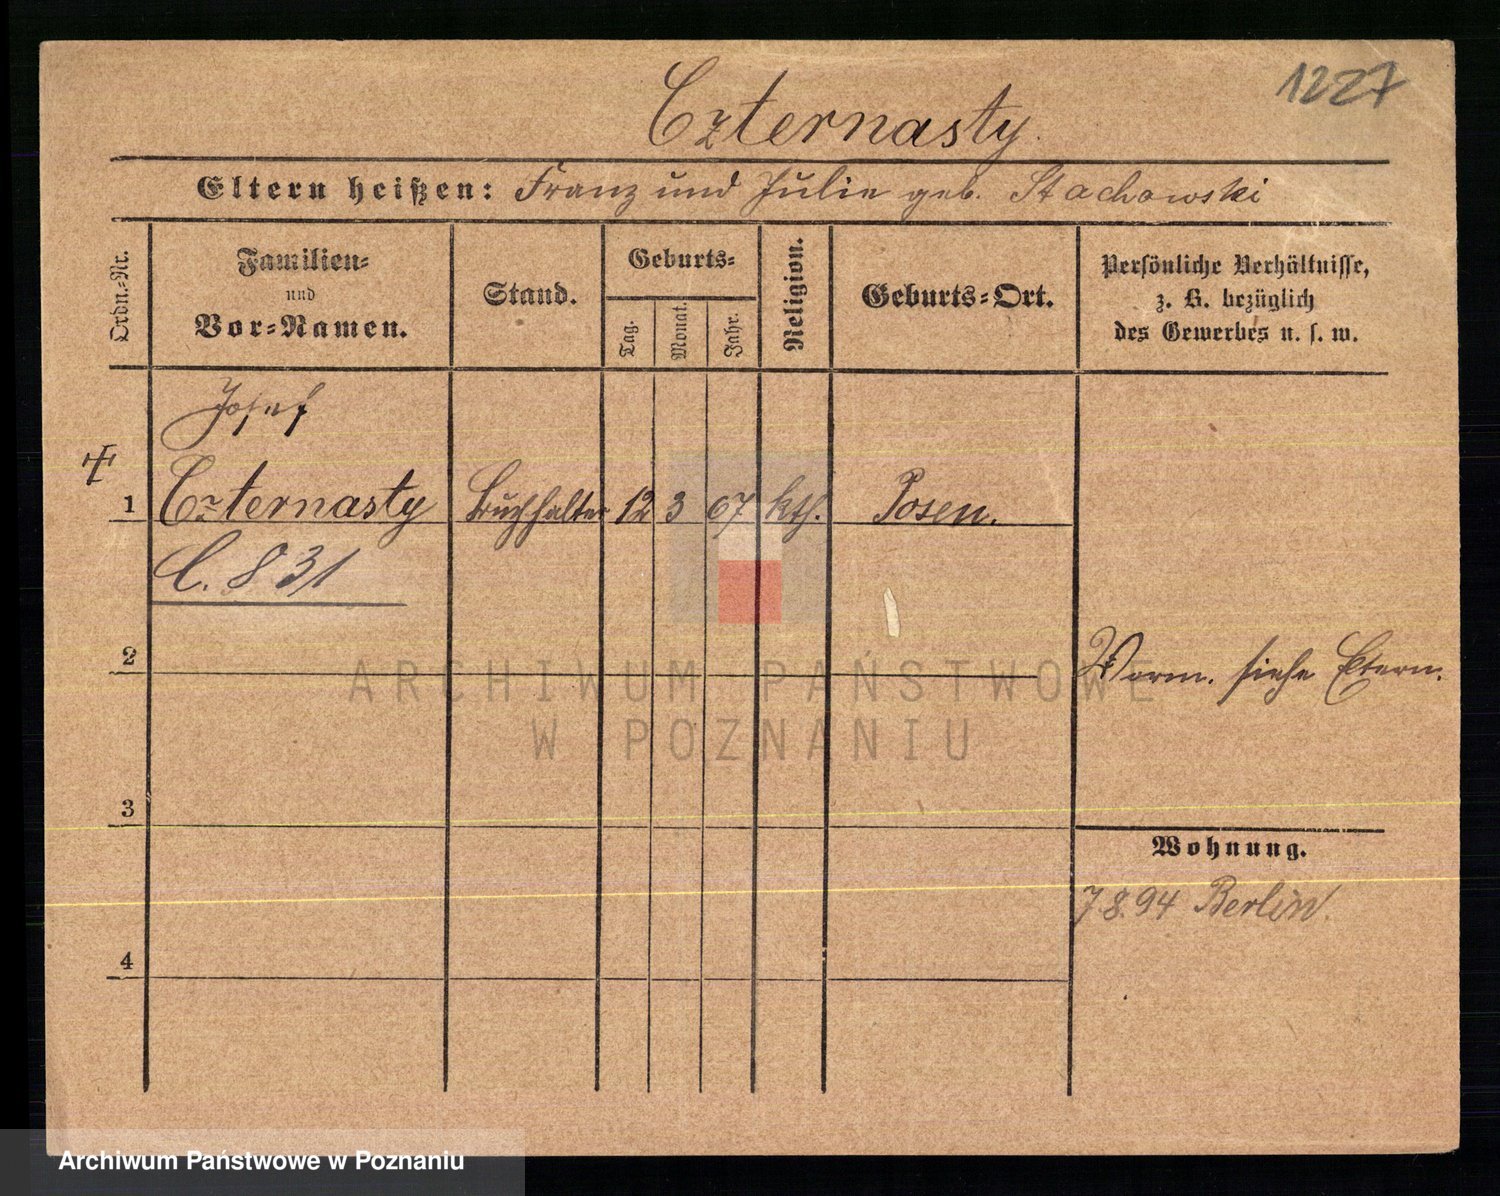 1227
Czternasty.
Eltern heißen: Franz und Julie geb. Stachowski
Ordn.-Nr.
Familien-
und
Vor-Namen.
Stand.
Geburts-
Tag.
Monat.
Jahr.
Religion.
Geburts-Ort.
Persönliche Verhältnisse,
z. B. bezüglich
des Gewerbes u. s. w.
Josef
1 Czternasty Buchhalter 12 3 67 kth. Posen.
C. 831
2
Verm. siehe Eltern.
3
Wohnung.
7.8.94 Berlin.
4
ARCHIWUM PAŃSTWOWE
W POZNANIU
Archiwum Państwowe w Poznaniu